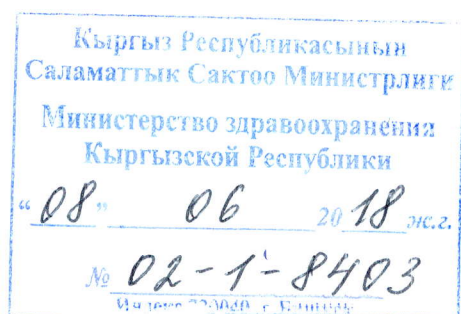 Кыргыз Республикасынын
Саламаттык Сактоо Министрлиги
Министерство здравоохранения
Кыргызской Республики
"08" 06 2018 ж.г.
№ 02-1-8403
720040, г. Бишкек